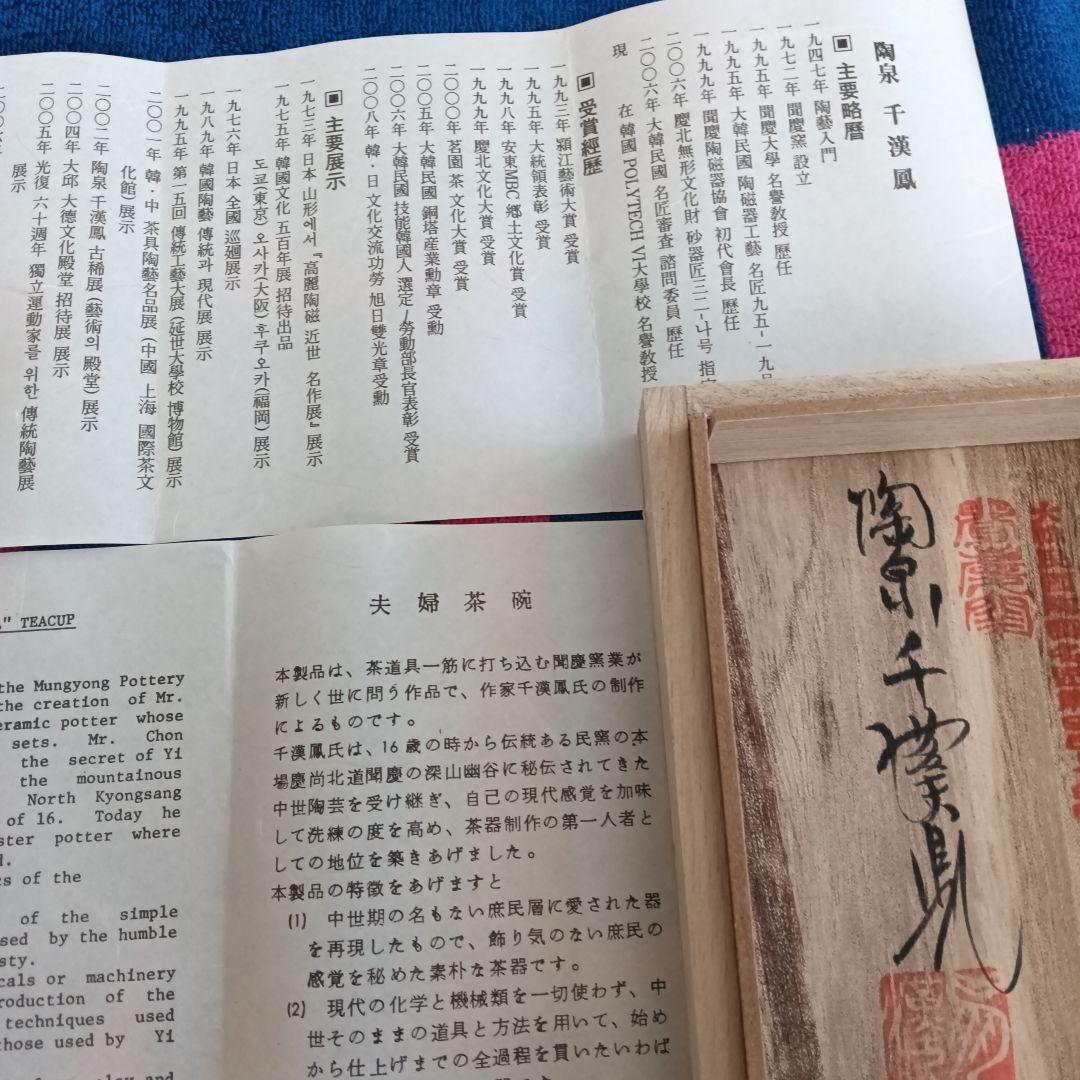 陶泉 千漢鳳
▣ 主要略曆
一九四七年 陶藝入門
一九七二年 聞慶窯 設立
一九九五年 聞慶大學 名譽教授 歷任
一九九五年 大韓民國 陶磁器工藝 名匠九五-一九
一九九九年 聞慶陶磁器協會 初代會長 歷任
二〇〇六年 慶北無形文化財 砂器匠三二-나号 指定
二〇〇六年 大韓民國 名匠審査 諮問委員 歷任
現 在 韓國 POLYTECH VI大學校 名譽教授
▣ 受賞經歷
一九九三年 潁江藝術大賞 受賞
一九九五年 大統領表彰 受賞
一九九八年 安東MBC 鄕土文化賞 受賞
一九九九年 慶北文化大賞 受賞
二〇〇〇年 茗園 茶 文化大賞 受賞
二〇〇五年 大韓民國 銅塔産業勳章 受勳
二〇〇六年 大韓民國 技能韓國人 選定/勞動部長官表彰 受賞
二〇〇八年 韓・日 文化交流功勞 旭日雙光章受勳
▣ 主要展示
一九七三年 日本 山形에서『高麗陶磁 近世 名作展』展示
一九七五年 韓國文化 五百年展 招待出品
도쿄(東京) 오사카(大阪) 후쿠오카(福岡) 展示
一九七六年 日本 全國 巡廻展示
一九八九年 韓國陶藝 傳統과 現代展 展示
一九九五年 第一五回 傳統工藝大展(延世大學校 博物館) 展示
二〇〇一年 韓・中 茶具陶藝名品展(中國 上海 國際茶文
化館) 展示
二〇〇二年 陶泉 千漢鳳 古稀展(藝術의 殿堂) 展示
二〇〇四年 大邱 大德文化殿堂 招待展 展示
二〇〇五年 光復 六十週年 獨立運動家를 위한 傳統陶藝展
展示
二〇〇六年
" TEACUP
the Mungyong Pottery
the creation of Mr.
eramic potter whose
sets. Mr. Chon
the secret of Yi
the mountainous
North Kyongsang
of 16. Today he
ster potter where
d.
cs of the
of the simple
sed by the humble
sty.
cals or machinery
roduction of the
techniques used
those used by Yi
夫婦茶碗
本製品は、茶道具一筋に打ち込む聞慶窯業が
新しく世に問う作品で、作家千漢鳳氏の制作
によるものです。
千漢鳳氏は、16歳の時から伝統ある民窯の本
場慶尚北道聞慶の深山幽谷に秘伝されてきた
中世陶芸を受け継ぎ、自己の現代感覚を加味
して洗練の度を高め、茶器制作の第一人者と
しての地位を築きあげました。
本製品の特徴をあげますと
(1) 中世期の名もない庶民層に愛された器
を再現したもので、飾り気のない庶民の
感覚を秘めた素朴な茶器です。
(2) 現代の化学と機械類を一切使わず、中
世そのままの道具と方法を用いて、始め
から仕上げまでの全過程を貫いたいわば
陶泉 千漢鳳